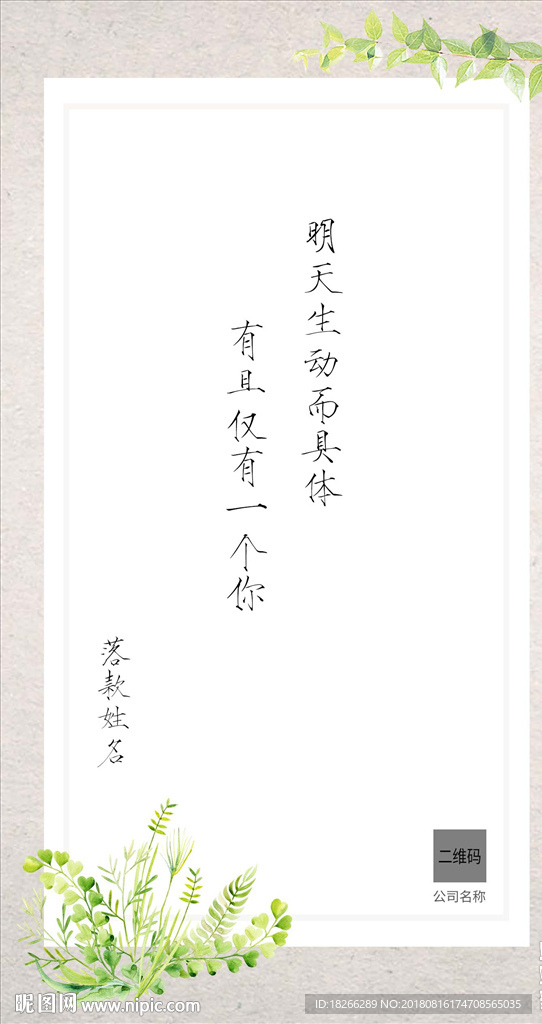 明天生动而具体
有且仅有一个你
落款姓名
二维码
公司名称
昵图网 www.nipic.com
ID:18266289 NO:20180816174708565035